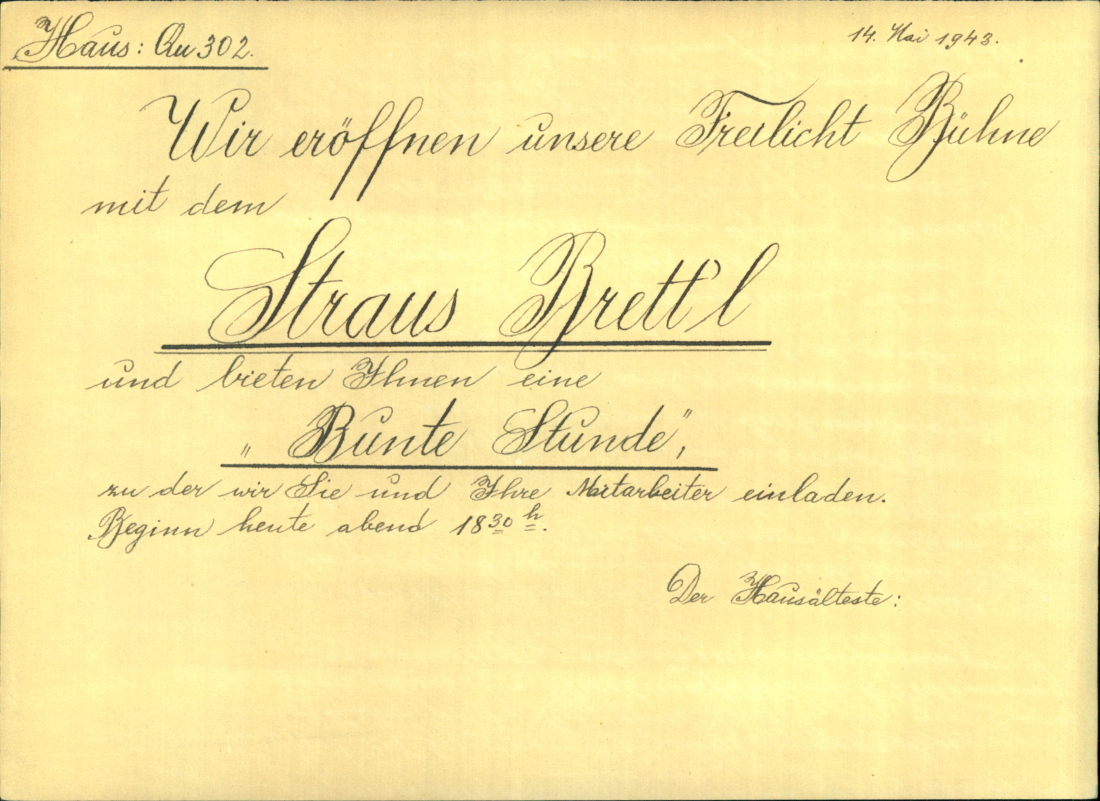 Haus: Qu 302.
14. Mai 1943.
Wir eröffnen unsere Freilicht Bühne
mit dem
Straus Brett'l
und bieten Ihnen eine
„Bunte Stunde",
zu der wir Sie und Ihre Mitarbeiter einladen.
Beginn heute abend 18 30 h.
Der Hausälteste: